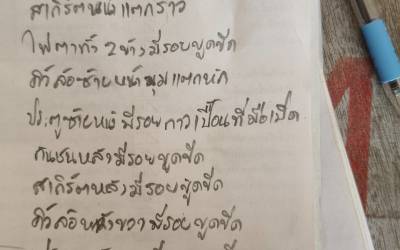 สเกิร์ตหน้าแตกร้าว
ไฟตาทั้ง 2 ข้างมีรอยขูดขีด
คิ้วล้อซ้ายหน้ามุมแตกหัก
ประตูซ้ายหน้ามีรอยกาวเปื้อนที่มือเปิด
กันชนหลังมีรอยขูดขีด
สเกิร์ตหลังมีรอยขูดขีด
คิ้วล้อหลังขวามีรอยขูดขีด